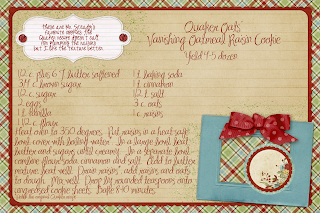 Quaker Oats'
Vanishing Oatmeal Raisin Cookie
Yield 4.5 dozen
these are Mr.
favorite cookies. the
Quaker recipe doesn't call
for plumping the raisins
but I like the texture better.
1/2 c. plus 6 T butter softened
3/4 c. brown sugar
1/2 c. sugar
2 eggs
1 t. vanilla
1 1/2 c. flour
1 t. baking soda
1 t. cinnamon
1/2 t. salt
3 c. oats
1 c. raisins
Heat oven to 350 degrees. Put raisins in a heat-safe
bowl, cover with boiling water. In a large bowl, beat
butter and sugars until creamy. In a separate bowl,
combine flour, soda, cinnamon and salt. Add to butter
mixture, beat well. Drain raisins*, add raisins and oats
to dough. Mix well. Drop by rounded teaspoons onto
ungreased cookie sheets. Bake 8-10 minutes.